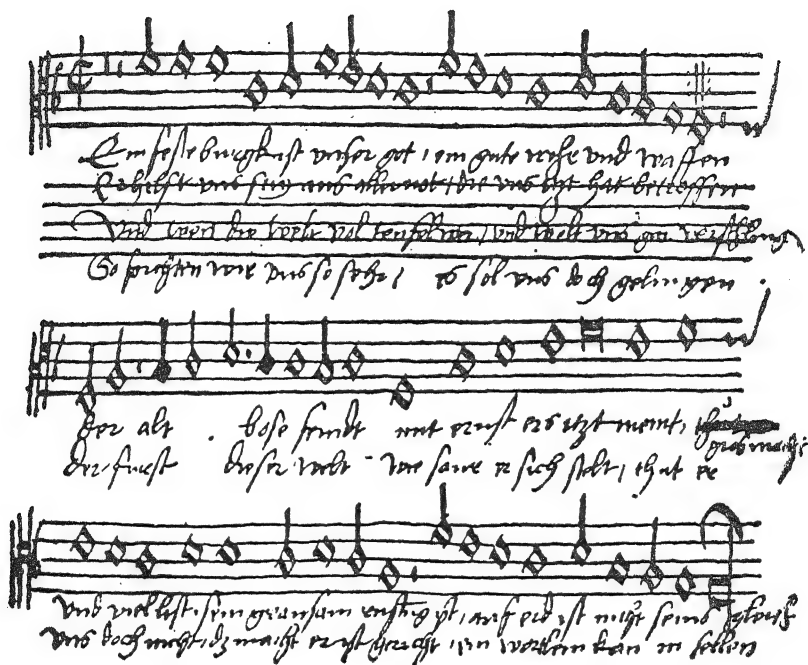 Ein feste burgk ist unser got, ein gute wehr und waffen
Er hilft uns frey aus aller not, die uns itzt hat betroffen
Und wen die welt vol teufel wer, und wolt uns gar verschlingen
So forchten wir uns so sehr, es sol uns doch gelingen
der alt bose feindt mit ernst ers itzt meint,
gros macht
der furst dieser welt wie saur er sich stelt, thut er
und viel list, sein grausam rustung ist, auf erd ist nicht seins gleich
uns doch nicht, dz macht er ist gericht, ein wortlein kan in fellen